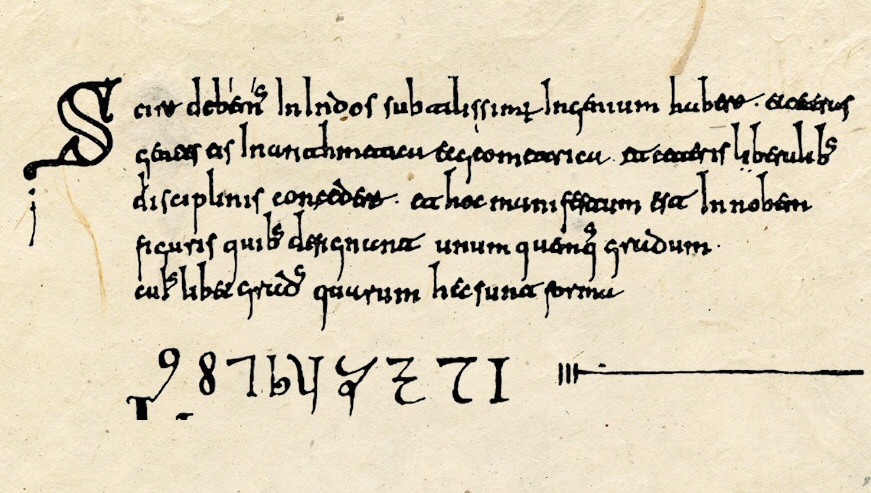 Scire debemus In Indos subtilissimum Ingenium habere. et ceteras
gentes eis In arithmetica et geometrica. et ceteris liberalibus
disciplinis concedere. et hoc manifestum est In nobem
figuris quibus designant unum quemque gradum.
cuiuslibet gradus quarum hec sunt forma
9 8 7 6 5 4 3 2 1